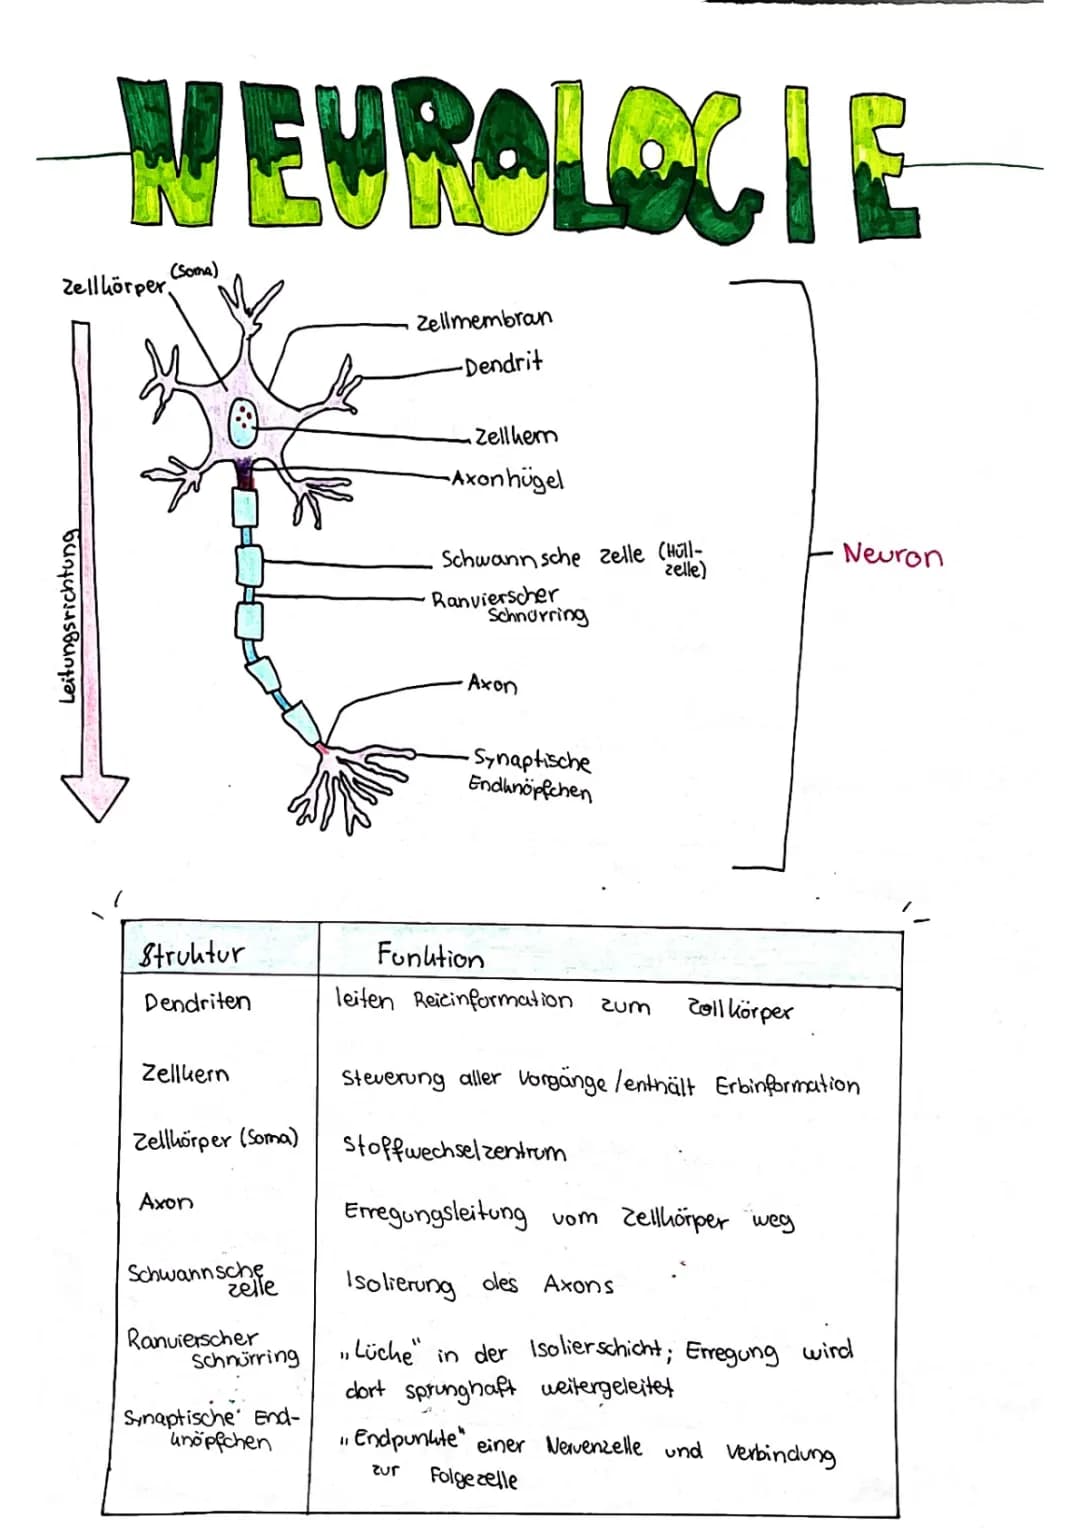 NEUROLOGIE
Zellkörper (Soma)
Zellmembran
Dendrit
Zellkern
Axonhügel
Schwannsche Zelle (Hüll-
zelle)
Ranvierscher
Schnürring
Neuron
Leitungsrichtung
Axon
Synaptische
Endknöpfchen
Struktur Funktion
Dendriten leiten Reizinformation zum Zellkörper
Zellkern Steuerung aller Vorgänge / enthält Erbinformation
Zellkörper (Soma) Stoffwechselzentrum
Axon Erregungsleitung vom Zellkörper weg
Schwannsche
Zelle Isolierung des Axons
Ranvierscher
Schnürring „Lücke" in der Isolierschicht; Erregung wird
dort sprunghaft weitergeleitet
Synaptische End-
knöpfchen „Endpunkte" einer Nervenzelle und Verbindung
zur Folgezelle